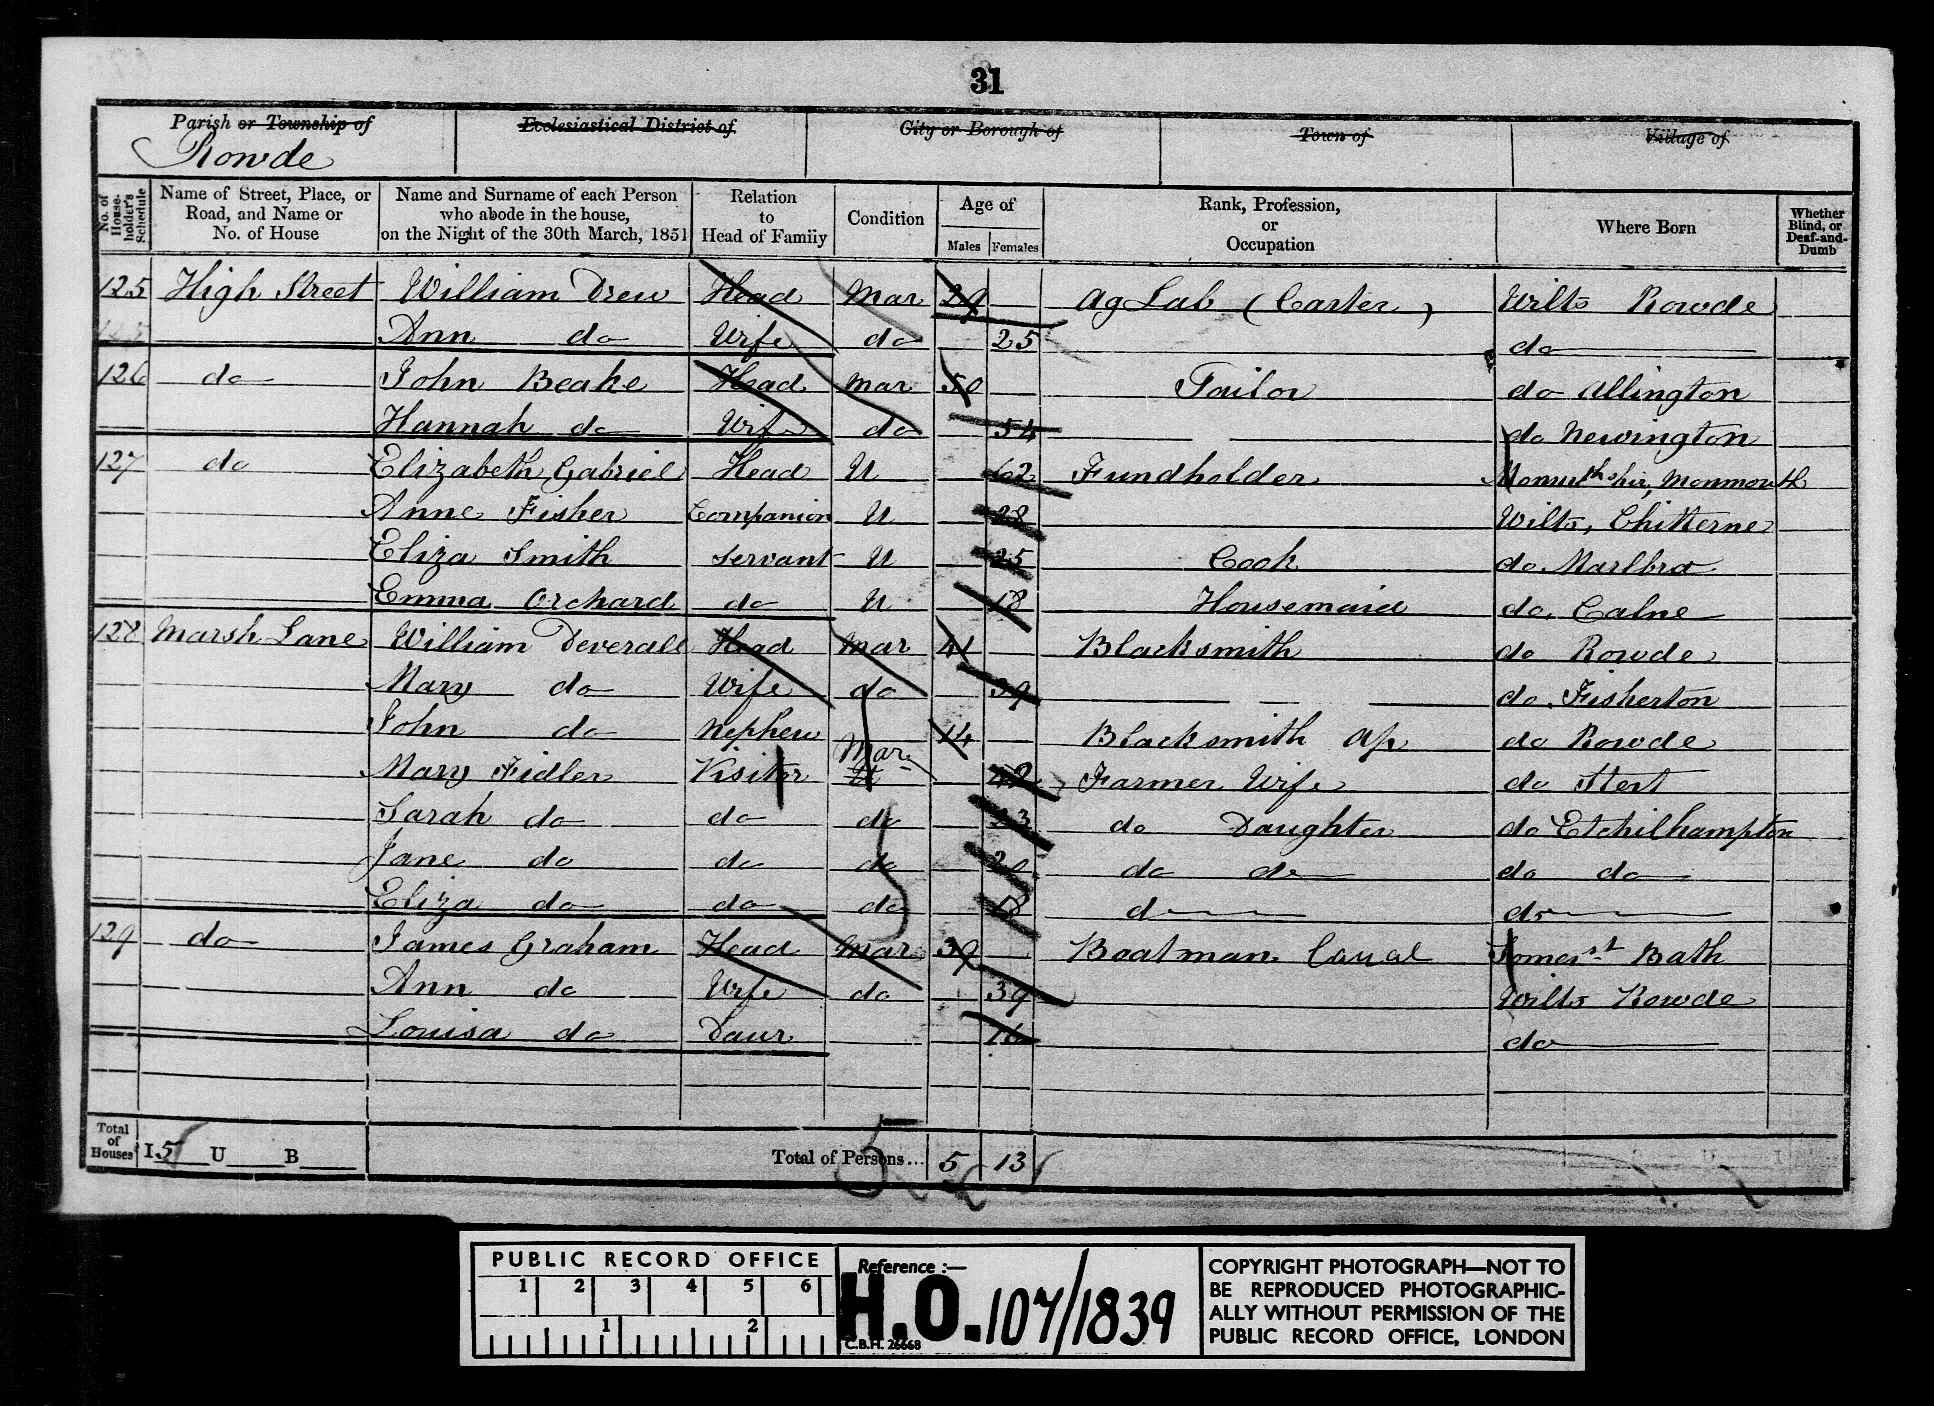 31
Parish or Township of Ecclesiastical District of City or Borough of Town of Village of
Rowde
No. of House-holder's Schedule Name of Street, Place, or Road, and Name or No. of House Name and Surname of each Person who abode in the house, on the Night of the 30th March, 1851 Relation to Head of Family Condition Age of Males Females Rank, Profession, or Occupation Where Born Whether Blind, or Deaf-and-Dumb
125 High Street William Drew Head Mar 29 Ag Lab (Carter) Wilts Rowde
Ann do Wife do 25 do
126 do John Beake Head Mar 50 Tailor do Allington
Hannah do Wife do 54 do Newington
127 do Elizabeth Gabriel Head U 62 Fundholder Monmouth
Anne Fisher Companion U 28 Wilts, Chitterne
Eliza Smith Servant U 25 Cook do Marlbro
Emma Orchard do U 18 Housemaid do Calne
128 Marsh Lane William Deverall Head Mar 41 Blacksmith do Rowde
Mary do Wife do 39 do Fisherton
John do Nephew 14 Blacksmith Ap do Rowde
Mary Fidler Visitor Mar U Farmer Wife do Stert
Sarah do do do 23 do Daughter do Etchilhampton
Jane do do do 20 do do do do
Eliza do do do 18 do do
129 do James Graham Head Mar 39 Boatman Canal Somerst Bath
Ann do Wife do 39 Wilts Rowde
Louisa do Daur 16 do
Total of Houses I 5 U B Total of Persons... 5 13
5
PUBLIC RECORD OFFICE
1 2 3 4 5 6
1 2
Reference :—
H.O. 107/1839
C.B.H. 26668
COPYRIGHT PHOTOGRAPH—NOT TO
BE REPRODUCED PHOTOGRAPHIC-
ALLY WITHOUT PERMISSION OF THE
PUBLIC RECORD OFFICE, LONDON